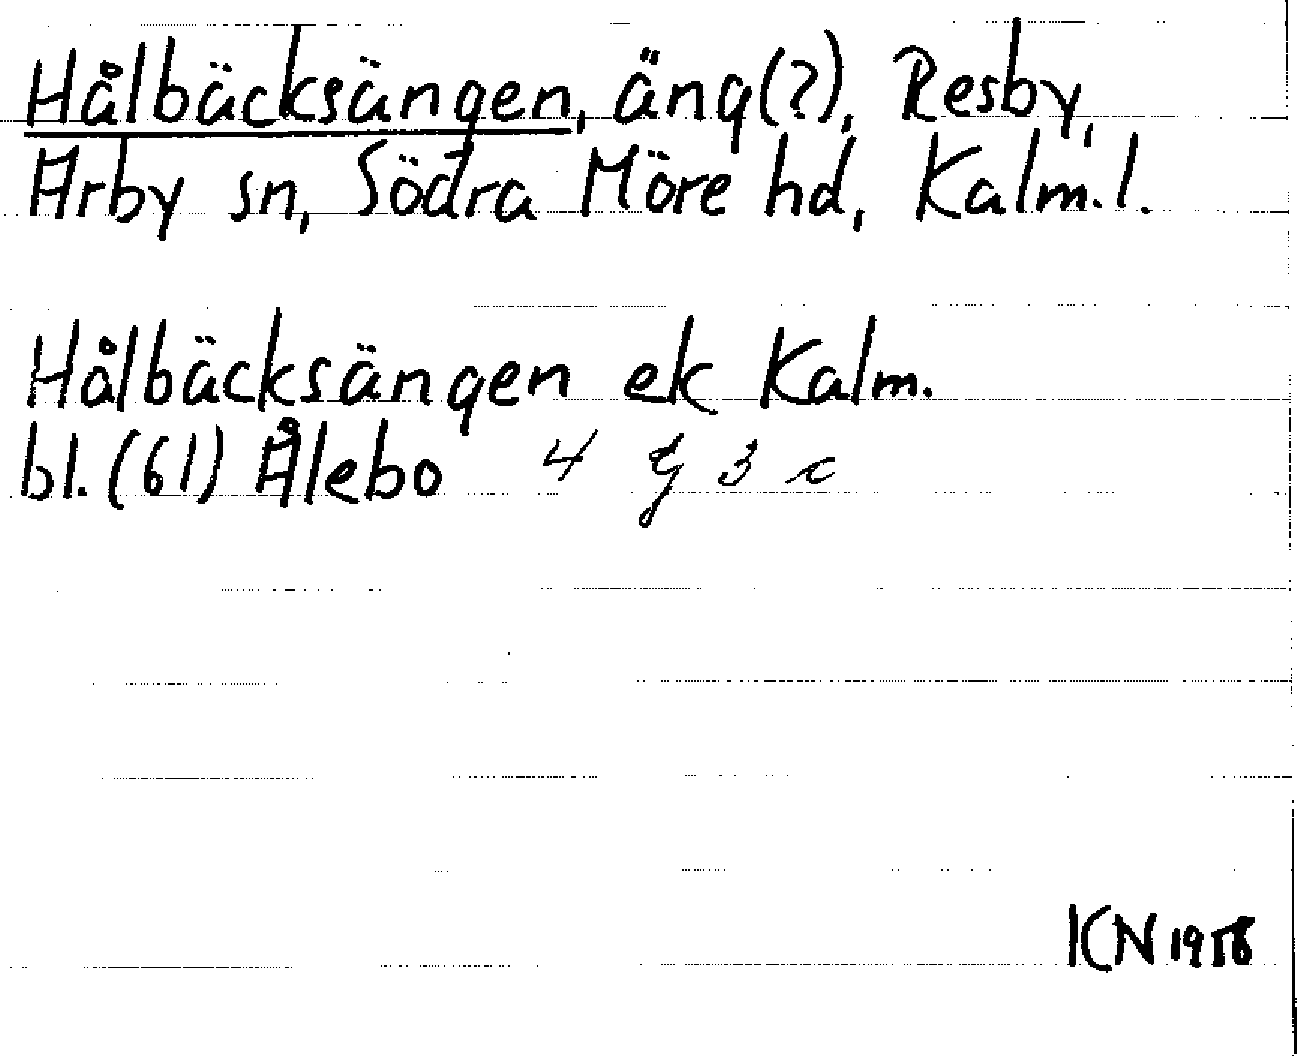 Hålbäcksängen, äng(?), Resby,
Arby sn, Södra Möre hd, Kalm.l.
Hålbäcksängen ek Kalm.
bl. (61) Ålebo 4 G 3 c
KN 1958